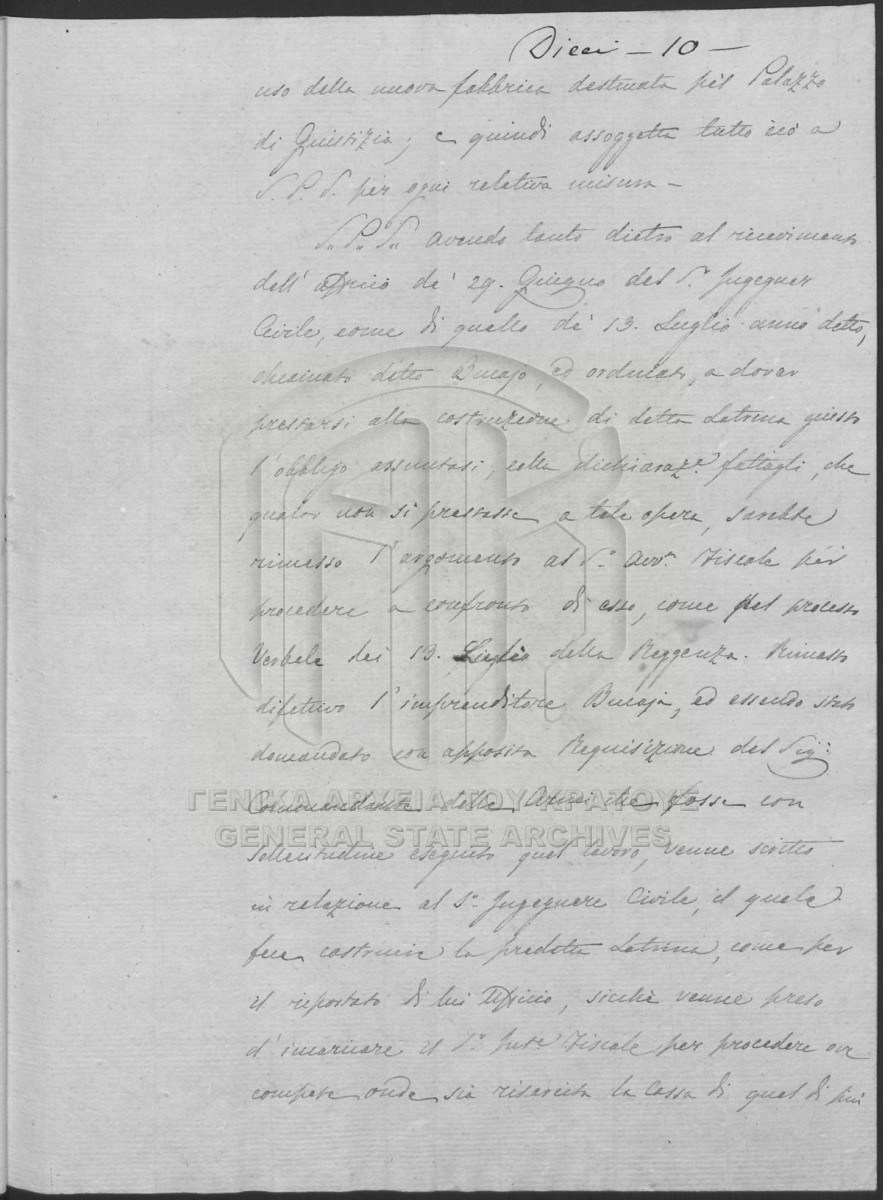 Dieci - 10 -
uso della nuova fabbrica destinata pel Palazzo
di Giustizia; e quindi assoggetta tutto ciò a
S. P. S. per ogni relativa misura -
S. P. S. avendo tanto dietro al ricevimento
dell' Officio de' 29. Giugno del Sr. Ingegner
Civile, come di quello de' 13. Luglio anno detto,
chiamato detto Bucaja, ed ordinato, a dover
prestarsi alla costruzione di detta Latrina giusto
l'obbligo assuntasi, colla dichiaraze. fattagli, che
qualor non si prestasse a tale opera, sarebbe
rimesso l'argomento al Sr. Avvo. Fiscale per
procedere a confronto di esso, come pel processo
Verbale dei 19. Luglio della Reggenza. Rimasto
difettivo l'imprenditore Bucaja, ed essendo stato
domandato con apposita Requisizione del Sig:
Commandante delle Armi che fosse con
sollecitudine eseguito quel lavoro, venne scritto
in relazione al Sr. Ingegnere Civile, il quale
fece costruire la predetta Latrina, come per
il riportato di lui Officio, sicchè venne preso
d'incaricare il Sr. Fiscale per procedere ove
compete onde sia risarcita la Cassa di quel di più
ΓΕΝΙΚΑ ΑΡΧΕΙΑ ΤΟΥ ΚΡΑΤΟΥΣ
GENERAL STATE ARCHIVES